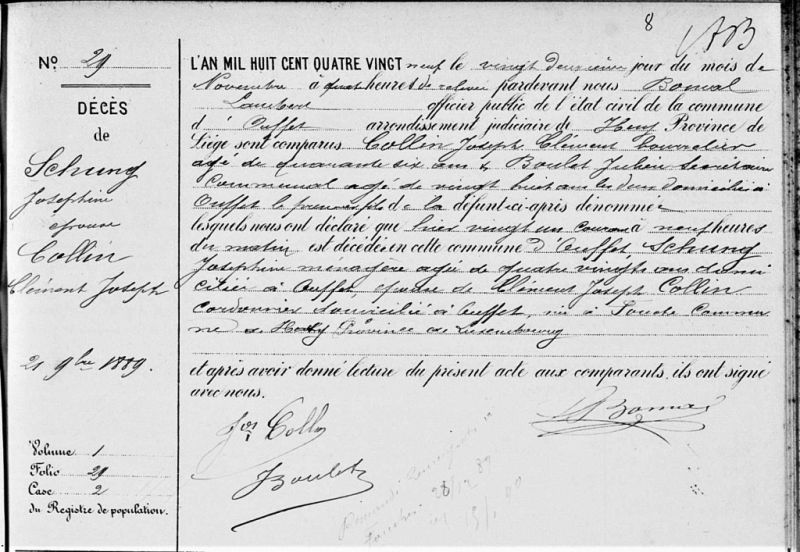 8
Nº 29
DÉCÈS
de
Schung
Josephine
épouse
Collin
Clément Joseph
21 9bre 1889.
Volume 1
Folio 29
Case 2
du Registre de population.
L'AN MIL HUIT CENT QUATRE VINGT neuf le vingt deuxième jour du mois de
Novembre à quatre heures de relevée pardevant nous Bonval
Lambert officier public de l'état civil de la commune
d' Ouffet arrondissement judiciaire de Huy Province de
Liège sont comparus Collin Joseph Clément bourrelier
agé de quarante six ans & Boulet Julien Secrétaire
Communal agé de vingt huit ans les deux domiciliés à
Ouffet le premier fils de la défunt-ci-après dénommée
lesquels nous ont déclaré que hier vingt un courant à neuf heures
du matin est décédée en cette commune d'Ouffet Schung
Josephine ménagère agée de quatre vingts ans domi
ciliée à Ouffet, épouse de Clément Joseph Collin
Cordonnier domicilié à Ouffet, née à Commu
ne de Province de Luxembourg
et après avoir donné lecture du présent acte aux comparants, ils ont signé
avec nous.
Jos Collin
Boulet
28/12 89